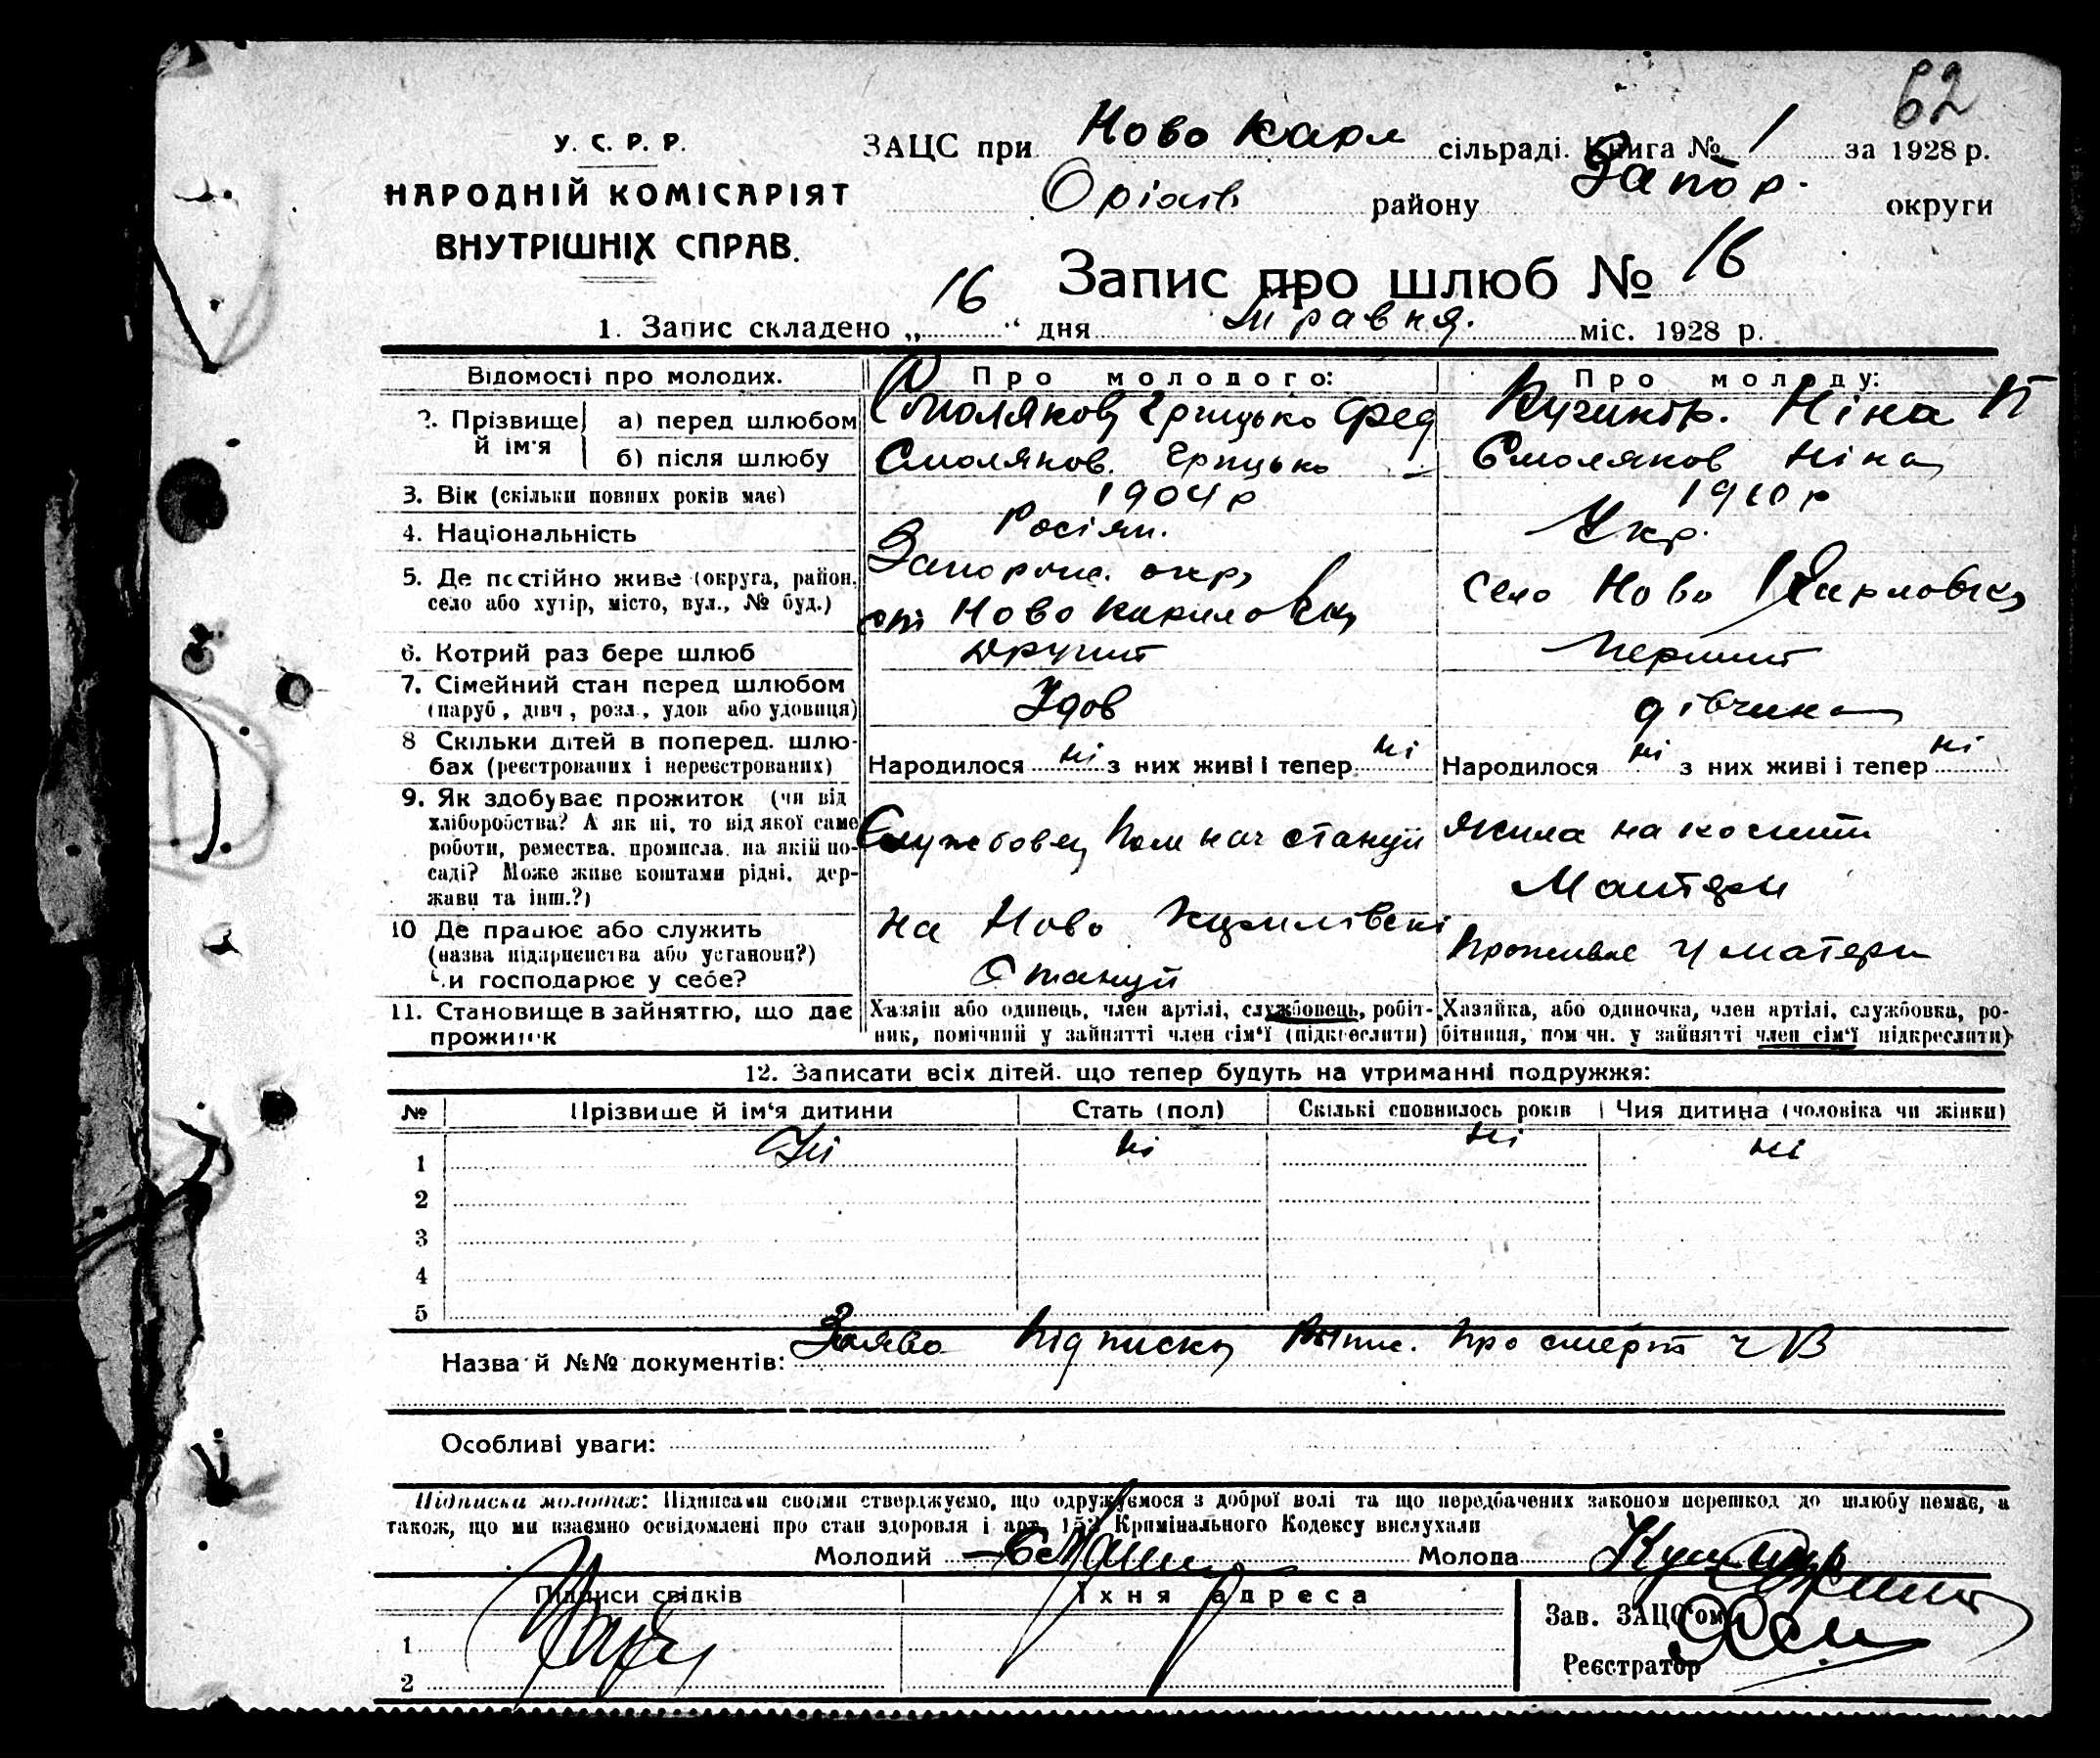 62
У. С. Р. Р.
НАРОДНІЙ КОМІСАРІЯТ
ВНУТРІШНІХ СПРАВ.
ЗАЦС при Ново Карл сільраді. Книга № 1 за 1928 р.
Оріхів району Запор. округи
Запис про шлюб № 16
1. Запис складено „ 16 “ дня травня. міс. 1928 р.
Відомості про молодих. Про молодого: Про молоду:
2. Прізвище й ім'я
а) перед шлюбом Смоляков Грицько Фед Ніна П
б) після шлюбу Смоляков. Грицько Смоляков Ніна
3. Вік (скільки повних років має) 1904 р 1910 р
4. Національність Росіян. Укр.
5. Де постійно живе (округа, район, село або хутір, місто, вул., № буд.)
Запоріж. окр,
ст Ново Карловка
село Ново Карловка
6. Котрий раз бере шлюб Другий Перший
7. Сімейний стан перед шлюбом (паруб., дівч., розл., удов або удовиця) Удов дівчина
8 Скільки дітей в поперед. шлюбах (реєстрованих і нереєстрованих)
Народилося ні з них живі і тепер ні
Народилося ні з них живі і тепер ні
9. Як здобуває прожиток (чи від
хліборобства? А як ні, то від якої саме
роботи, ремества, промисла, на якій по-
саді? Може живе коштами рідні, дер-
жави та інш.?)
Службовец Пом нач станции
жила на кошти
Матери
10 Де працює або служить
(назва підприємства або установи?)
Чи господарює у себе?
на Ново Карлівскі
Станции
Проживає у матери
11. Становище в зайняттю, що дає
прожиток
Хазяїн або одинець, член артілі, службовець, робіт-
ник, помічний у зайнятті член сім'ї (підкреслити)
Хазяйка, або одиночка, член артілі, службовка, ро-
бітниця, пом чн. у зайнятті член сім'ї підкреслити)
12. Записати всіх дітей, що тепер будуть на утриманні подружжя:
№ Прізвище й ім'я дитини Стать (пол) Скількі сповнилось років Чия дитина (чоловіка чи жінки)
1 Ні ні ні ні
2
3
4
5
Назва й №№ документів: Заява Підписка Випис. про смерт ЧВ
Особливі уваги:
Підписка молодих: Підписами своїми стверджуємо, що одружуємося з доброї волі та що передбачених законом перешкод до шлюбу немає, а
також, що ми взаємно освідомлені про стан здоровля і арт. 153 Кримінального Кодексу вислухали
Молодий Молода
Підписи свідків Їхня адреса
1
2
Зав. ЗАЦС'ом
Реєстратор